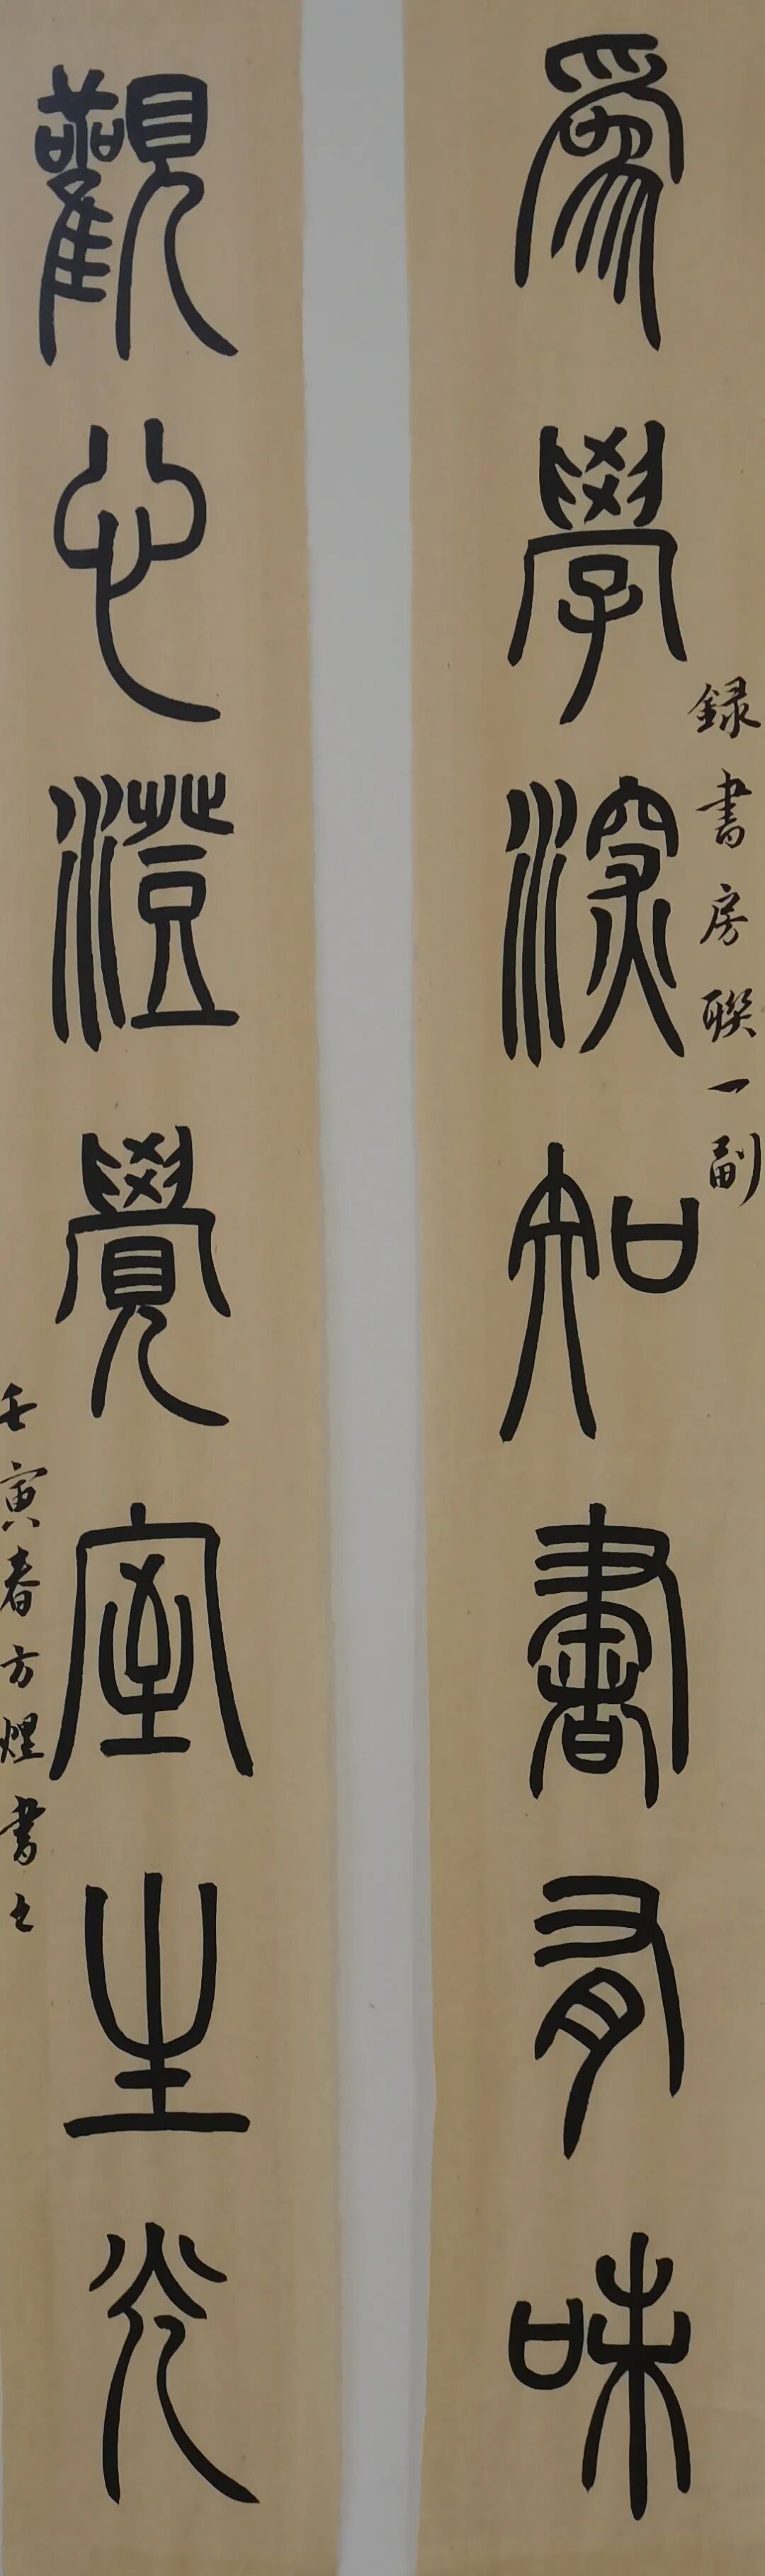 爲學深知書有味
錄書房聯一副
觀心澄覺室生光
壬寅春方煜書之